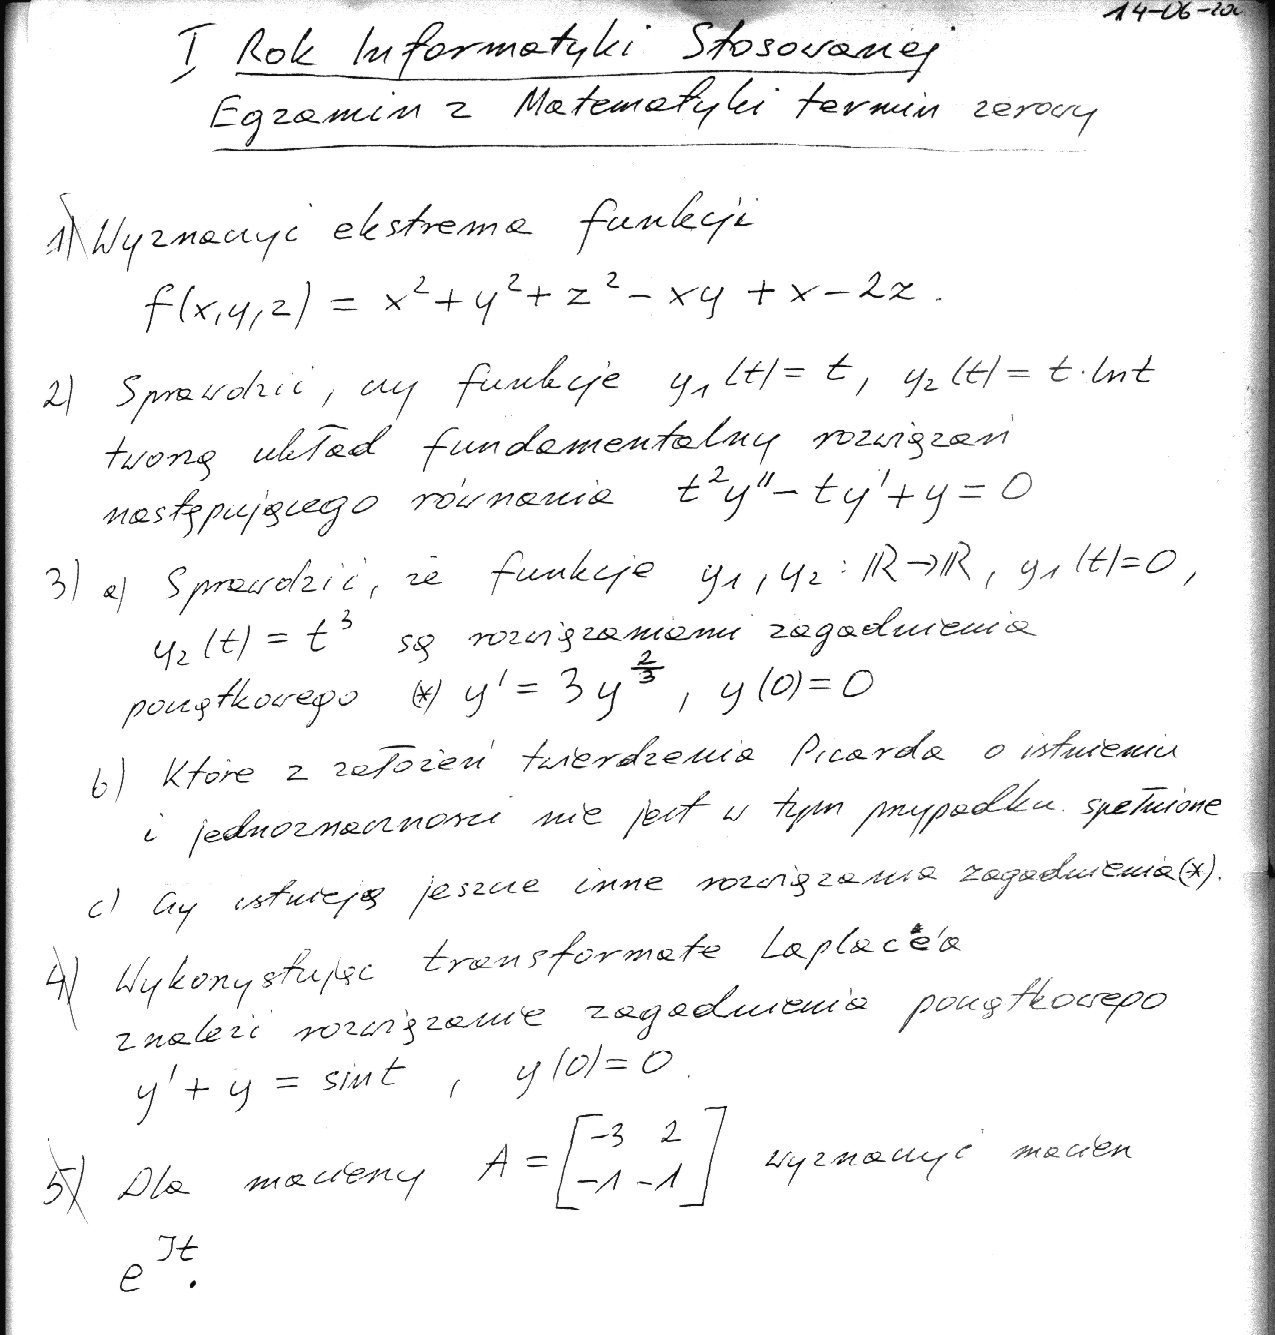 14-06-20
I Rok Informatyki Stosowanej
Egzamin z Matematyki termin zerowy
1) Wyznaczyć ekstrema funkcji
f(x,y,z) = x²+y²+z²-xy+x-2z.
2) Sprawdzić, czy funkcje y₁(t)=t, y₂(t)=t·lnt
tworzą układ fundamentalny rozwiązań
następującego równania t²y''-ty'+y=0
3) a) Sprawdzić, że funkcje y₁,y₂:ℝ→ℝ, y₁(t)=0,
y₂(t)=t³ są rozwiązaniami zagadnienia
początkowego (*) y'=3y^(2/3), y(0)=0
b) Które z założeń twierdzenia Picarda o istnieniu
i jednoznaczności nie jest w tym przypadku spełnione
c) Czy istnieją jeszcze inne rozwiązania zagadnienia(*).
4) Wykorzystując transformatę Laplace'a
znaleźć rozwiązanie zagadnienia początkowego
y'+y=sint, y(0)=0.
5) Dla macierzy A=[-3 2
-1 -1] wyznaczyć macierz
e^(Jt).